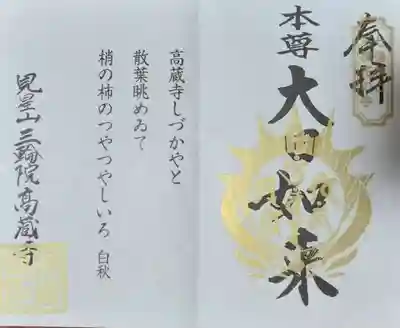 奉拝
本尊
大日如来
高蔵寺しづかやと
散葉眺めゐて
梢の柿のつやつやしいろ 白秋
見星山 三輪院 高蔵寺